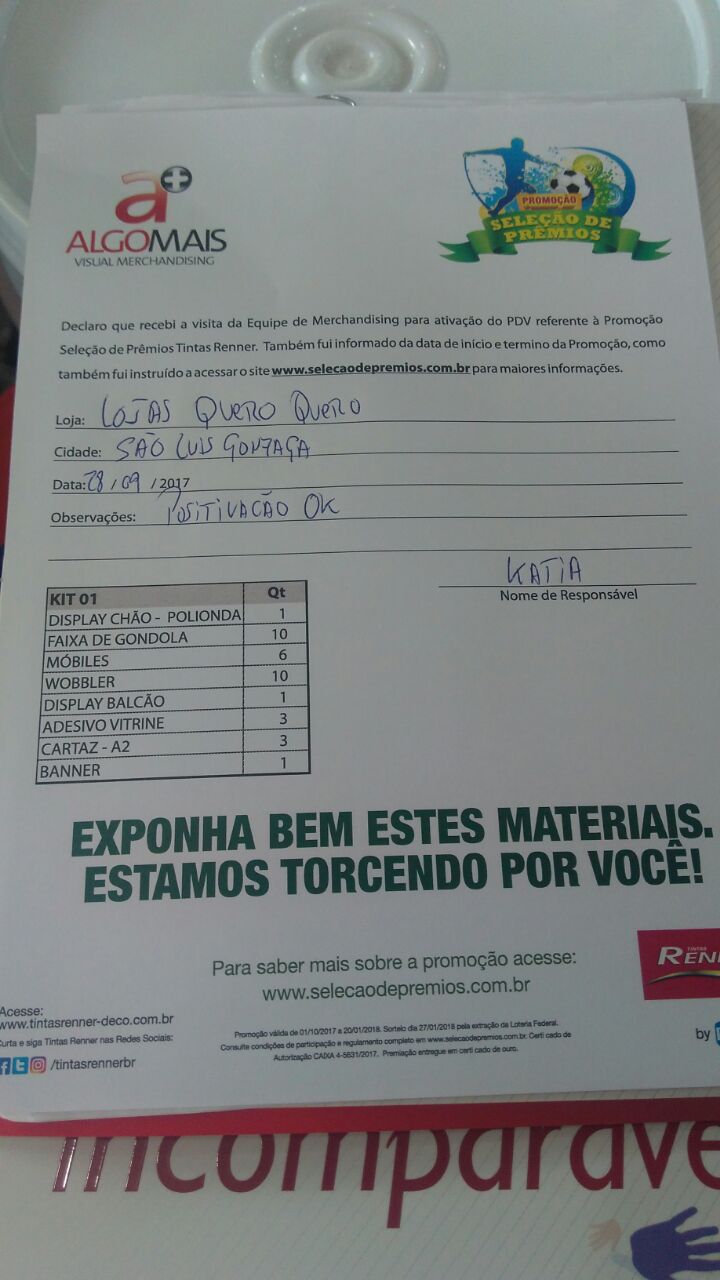 a+
ALGOMAIS
VISUAL MERCHANDISING
PROMOÇÃO
SELEÇÃO DE
PRÊMIOS
Declaro que recebi a visita da Equipe de Merchandising para ativação do PDV referente à Promoção
Seleção de Prêmios Tintas Renner. Também fui informado da data de início e termino da Promoção, como
também fui instruído a acessar o site www.selecaodepremios.com.br para maiores informações.
Loja: LOJAS QUERO QUERO
Cidade: SÃO LUIS GONZAGA
Data: 28/09/2017
Observações: POSITIVACÃO OK
KATIA
Nome de Responsável
KIT 01 Qt
DISPLAY CHÃO - POLIONDA 1
FAIXA DE GONDOLA 10
MÓBILES 6
WOBBLER 10
DISPLAY BALCÃO 1
ADESIVO VITRINE 3
CARTAZ - A2 3
BANNER 1
EXPONHA BEM ESTES MATERIAIS.
ESTAMOS TORCENDO POR VOCÊ!
Para saber mais sobre a promoção acesse:
www.selecaodepremios.com.br
TINTAS
RENN
Acesse:
www.tintasrenner-deco.com.br
Curta e siga Tintas Renner nas Redes Sociais:
/tintasrennerbr
Promoção válida de 01/10/2017 a 20/01/2018. Sorteio dia 27/01/2018 pela extração da Loteria Federal.
Consulte condições de participação e regulamento completo em www.selecaodepremios.com.br. Certi cado de
Autorização CAIXA 4-5631/2017. Premiação entregue em certi cado de ouro.
by
incomparave